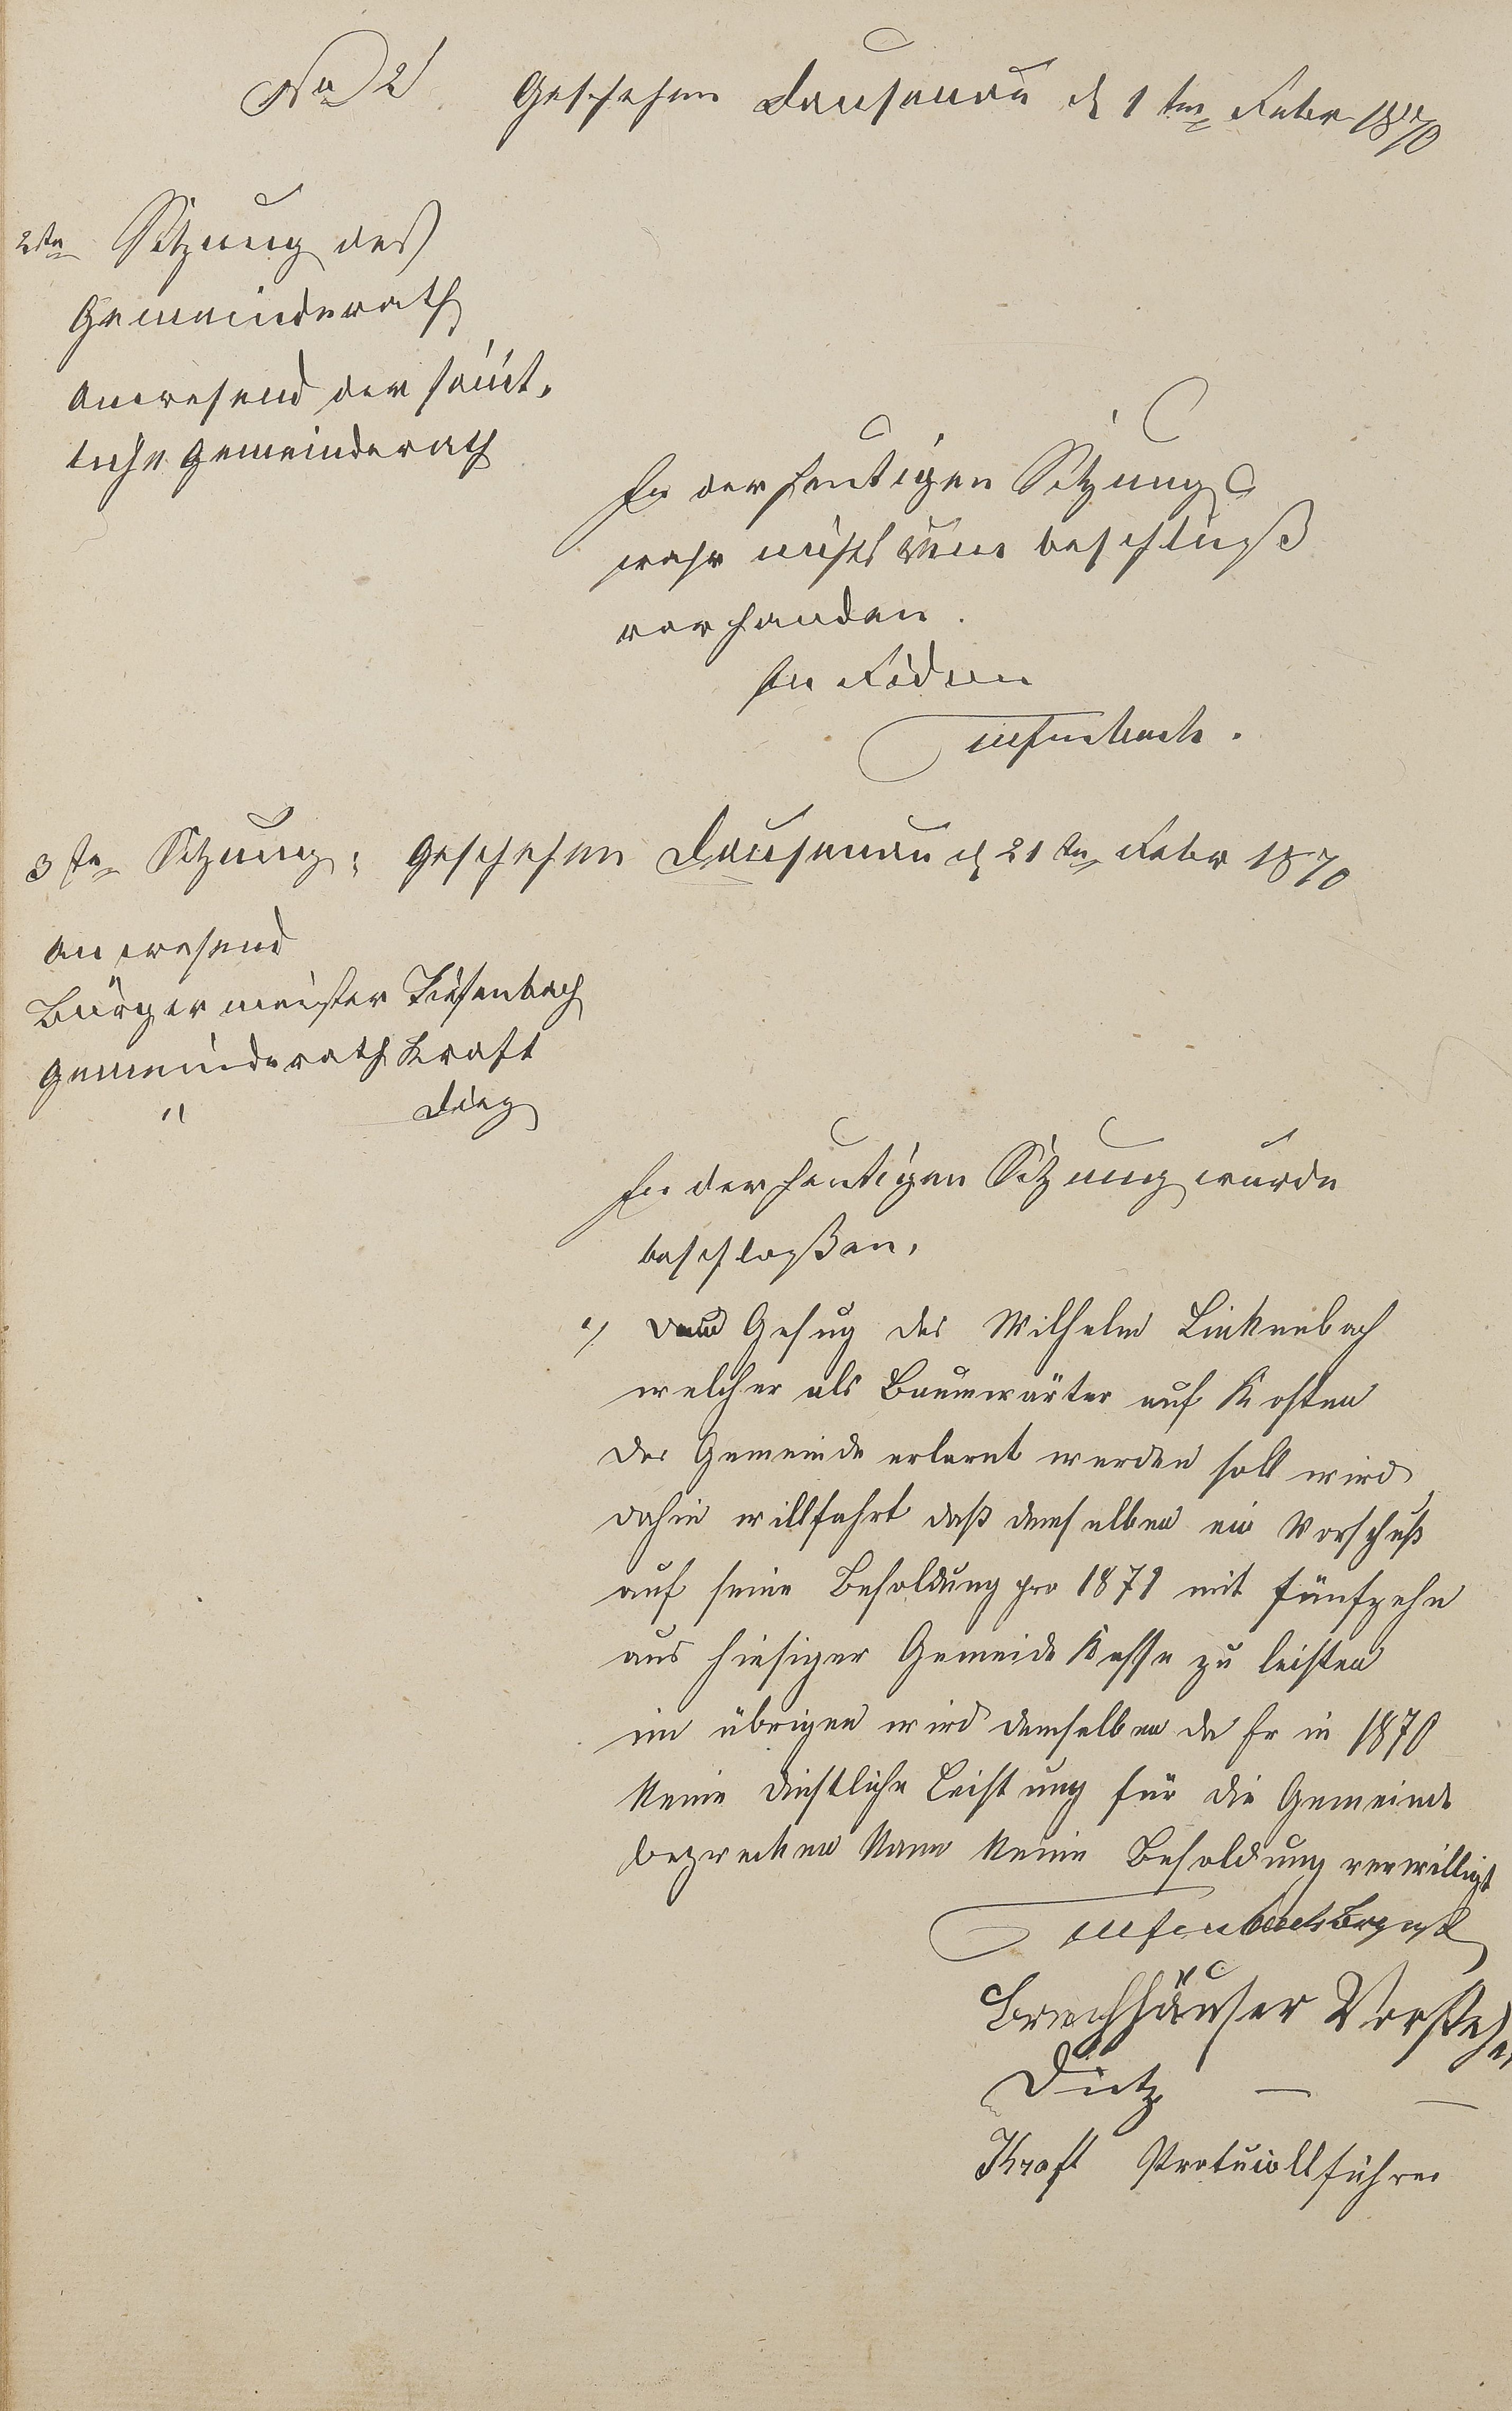 No 2 Geschehen Dausenau d 1ten Febr 1870
2te Sitzung des
Gemeinderath
Anwesend der sämt-
liche Gemeinderath
In der heutigen Sitzung
wahr nichts zum beschluß
vorhanden.
In Fidem
Tiefenbach.
3te Sitzung: Geschehen Dausenau d 21te Febr 1870
Anwesend
Bürgermeister Tiefenbach
Gemeinderath Kraft
" Dietz
In der heutigen Sitzung wurde
beschloßen,
1) Gesug des Wilhelm Linkenbach
welcher als Baumwärter auf Kosten
der Gemeinde erlernt werden soll wird
dahin willfahrt daß demselben ein Vorschuß
auf seine Besoldung pro 1871 mit fünfzehn
aus hiesiger Gemeide Kasse zu leisten
im übrigen wird demselben da Er in 1870
keine dinstliche Leistung für die Gemeinde
bezwecken kann keine Besoldung verwilligt
Tiefenbach Brgmst
Bruchhäuser Vorsteher
Dietz — —
Kraft Protucollführer